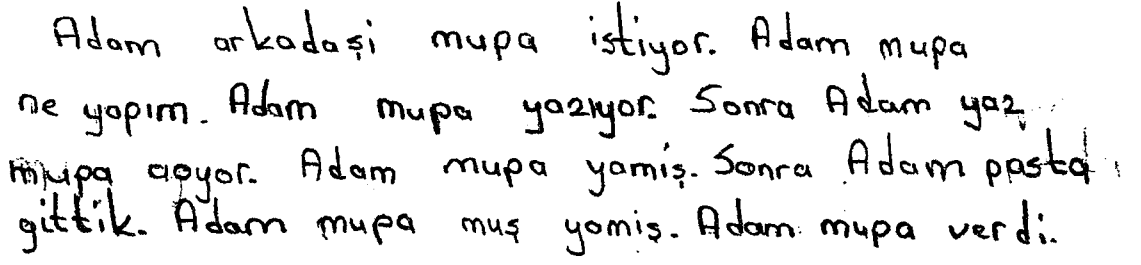 Adam arkadaşi mupa istiyor. Adam mupa
ne yapım. Adam mupa yazıyor. Sonra Adam yaz
mupa apyor. Adam mupa yamiş. Sonra Adam pasta
gittik. Adam mupa muş yamiş. Adam mupa verdi.